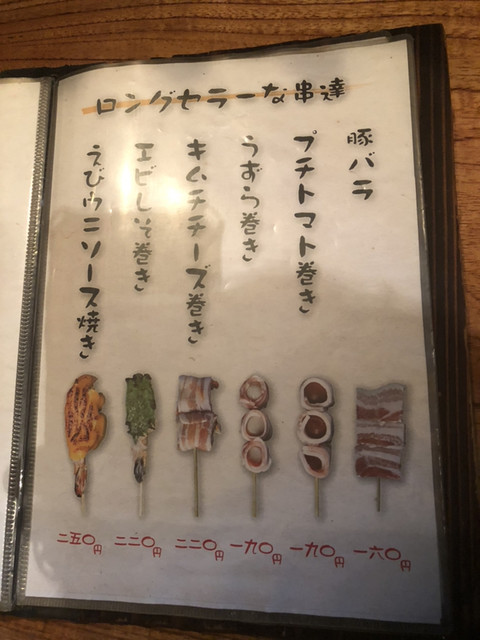 ロングセラーな串達
豚バラ
プチトマト巻き
うずら巻き
キムチチーズ巻き
エビしそ巻き
えびウニソース焼き
一六〇円
一九〇円
一九〇円
二二〇円
二二〇円
二五〇円